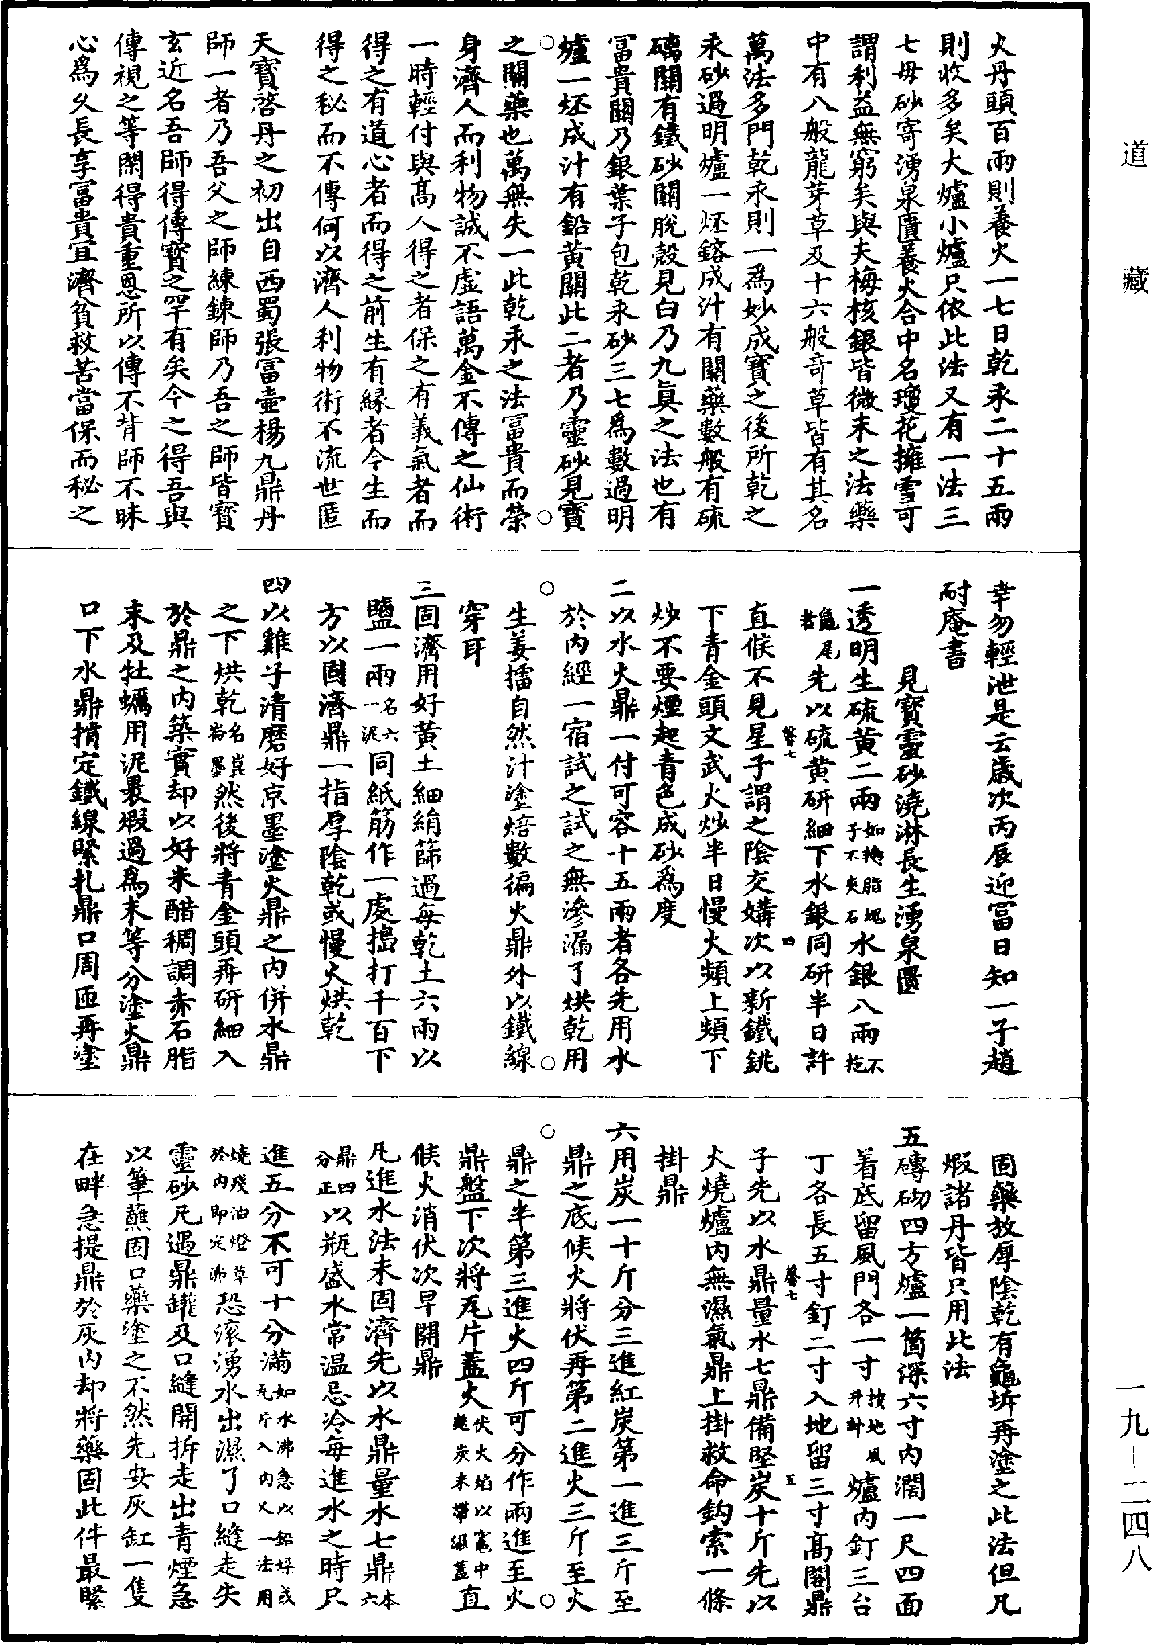 火丹頭百兩則養火一七日乾汞二十五兩
則收多矣大爐小爐只依此法又有一法三
七母砂寄湧泉匱養火合中名瓊花擁雪可
謂利益無窮矣與夫梅核銀皆微末之法藥
中有八般龍芽草及十六般奇草皆有其名
萬法多門乾汞則一為妙成寶之後所乾之
汞砂過明爐一坯鎔成汁有關藥數般有硫
磠關有鐵砂關脫殼見白乃九真之法也有
冨貴關乃銀葉子包乾汞砂三七為數過明
爐一坯成汁有鉛黃關此二者乃靈砂見寶
之關藥也萬無失一此乾汞之法冨貴而榮
身濟人而利物誠不虛語萬金不傳之仙術
一時輕付與高人得之者保之有義氣者而
得之有道心者而得之前生有緣者今生而
得之秘而不傳何以濟人利物術不流世匿
天寶啓丹之初出自西蜀張冨壺楊九鼎丹
師一者乃吾父之師練鍊師乃吾之師皆寶
玄近名吾師得傳寶之罕有矣今之得吾與
傳視之等閑得貴重恩所以傳不背師不昧
心為久長享冨貴宜濟貧救苦當保而秘之
幸勿輕泄是云歲次丙辰迎冨日知一子趙
耐庵書
見寶靈砂澆淋長生湧泉匱
一透明生硫黃二兩如掩脂塊子不夾石水銀八兩不挖
龜尾者先以硫黃研細下水銀同研半日許
直候不見星子謂之陰交媾次以新鐵銚
下青金頭文武火炒半日慢火頻上頻下
炒不要煙起青色成砂為度
二以水火鼎一付可容十五兩者各先用水
於內經一宿試之試之無滲漏了烘乾用
生姜擂自然汁塗焙數徧火鼎外以鐵線
穿耳
三固濟用好黃土細絹篩過每乾土六兩以
鹽一兩名六一泥同紙筋作一處搗打千百下
方以固濟鼎一指厚陰乾或慢火烘乾
四以雞子清磨好京墨塗火鼎之內併水鼎
之下烘乾然後將青金頭再研細入
於鼎之內築實却以好米醋稠調赤石脂
末及牡蠣用泥裹煆過為末等分塗火鼎
口下水鼎揹定鐵線緊扎鼎口周匝再塗
固藥放厚陰乾有龜坼再塗之此法但凡
煆諸丹皆只用此法
五磚砌四方爐一箇深六寸內濶一尺四面
着底留風門各一寸爐內釘三台
丁各長五寸釘二寸入地留三寸高閣鼎
子先以水鼎量水七鼎備堅炭十斤先以
火燒爐內無濕氣鼎上掛救命鈎索一條
掛鼎
六用炭一十斤分三進紅炭第一進三斤至
鼎之底候火將伏再第二進火三斤至火
鼎之半第三進火四斤可分作兩進至火
鼎盤下次將瓦片蓋火直
候火消伏次早開鼎
凡進水法未固濟先以水鼎量水七鼎本六
鼎四分正以瓶盛水常温忌冷每進水之時只
進五分不可十分滿如水沸急以鉛好或瓦片入內又一法用
燒殘油燈草於內即定沸恐滚湧水出濕了口縫走失
靈砂凡遇鼎罐及口縫開拆走出青煙急
以筆蘸固口藥塗之不然先安灰缸一隻
在畔急提鼎於灰內却將藥固此件最緊
道藏
一九-二四八